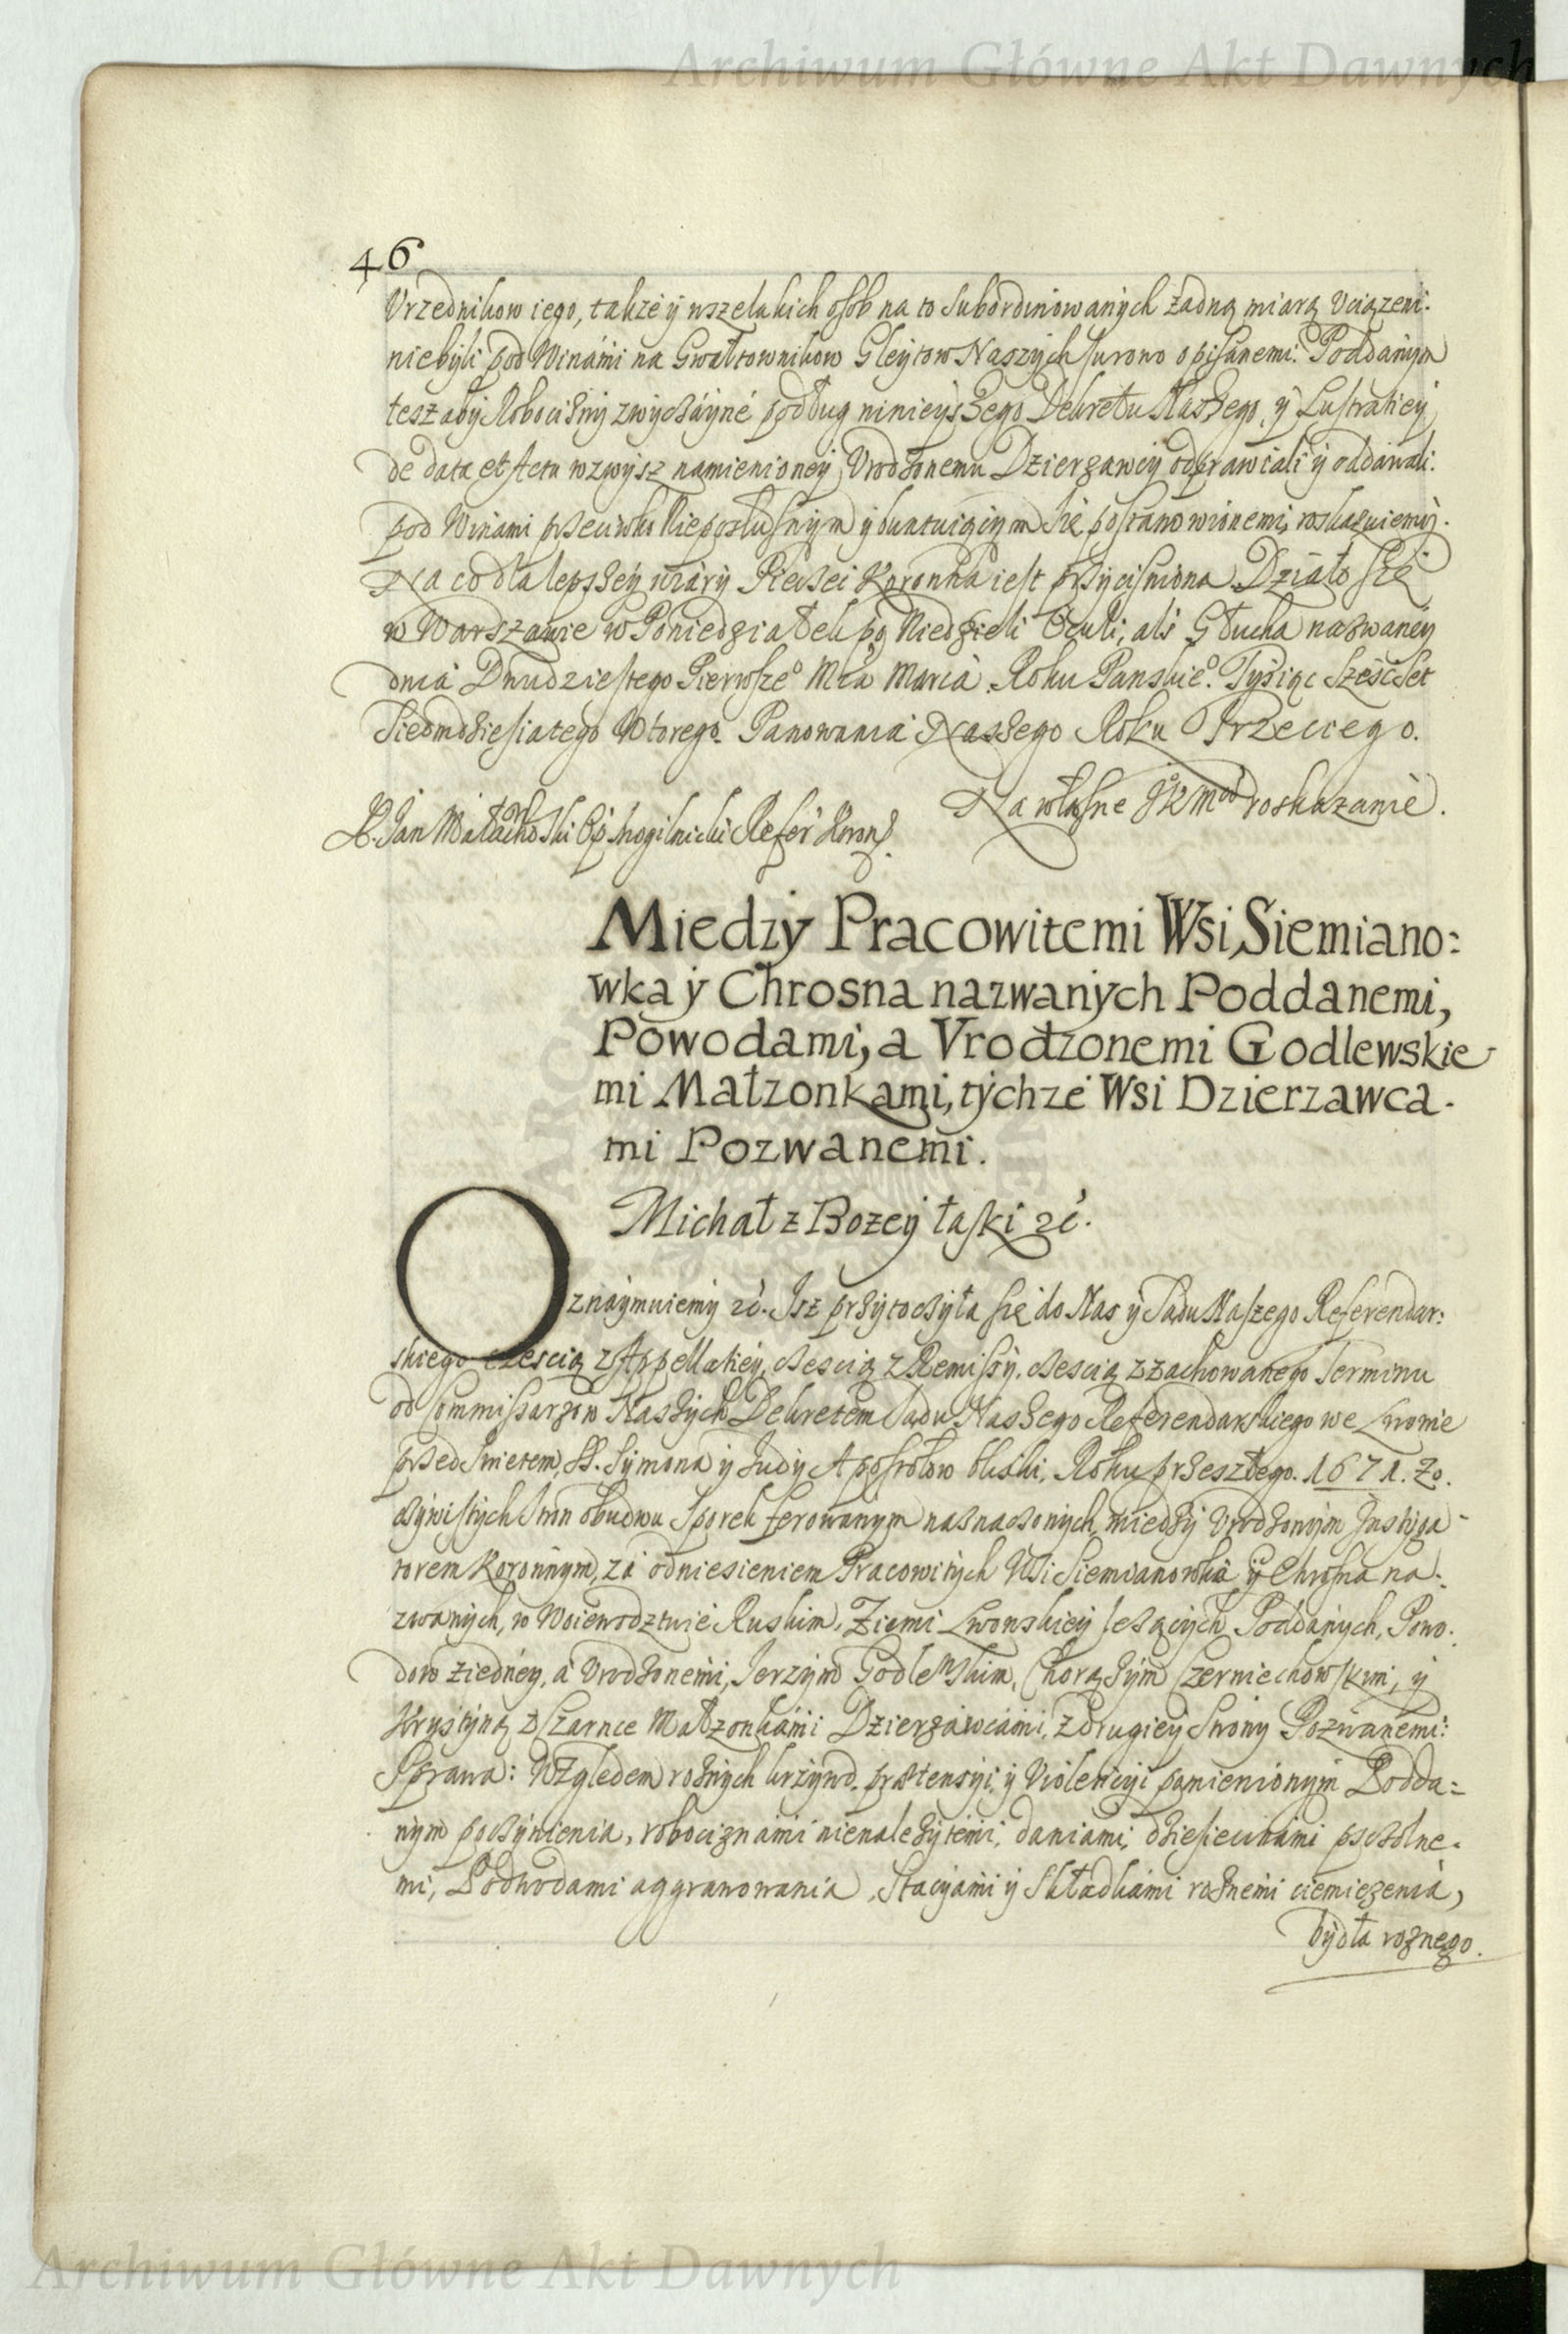 Archiwum Główne Akt Dawnych
46
Vrzednikow iego, także ÿ wszelakich osob na to subordinowanÿch żadną miarą vciązeni.
niebÿli pod Winámi na Gwałtownikow Gleÿtow Naszÿch surowo opisanemi. Poddanÿm
tesz abÿ Robociznÿ zwÿczaÿne podług ninieÿszego Dekretu Naszego, ÿ Lustratieÿ
de data et Actu wzwÿsz namienioneÿ, Vrodzonemu Dzierzawcÿ odprawiali ÿ oddawali.
pod Winami przeciwko Nieposłusznÿm ÿ buntuiącÿm się postanowionemi, roskazuiemÿ.
Na co dla lepszeÿ wiarÿ Pieczęć Koronna iest przÿcisniona. Działo się
w Warszawie w Poniedziałek po Niedzieli Oculi, als Głucha nazwaneÿ
dnia Dwudziestego Pierwsze° Mca Marca. Roku Panskie°. Tÿsiąc Sześćset
Siedmdziesiatego Wtorego. Panowania Naszego Roku Trzeciego.
Na własne JKMci roskazanie.
X. Jan Małachoski Op. Mogilnicki Refer Koron.
Miedzy Pracowitemi Wsi Siemiano:
wka ÿ Chrosna nazwanÿch Poddanemi,
Powodami, a Vrodzonemi Godlewskie-
mi Małzonkami, tÿchże Wsi Dzierzawca-
mi Pozwanemi.
Michał z Bozeÿ łaski ꝛc.
Oznaÿmuiemÿ ꝛc. Isz przÿtoczÿła się do Nas ÿ Sądu Naszego Referendar:
skiego cześcią z Appellatieÿ, cześcią z Remissÿ. cześcią z zachowanego Terminu
od Commissarzow Naszÿch Dekretem Sądu Naszego Referendarskiego we Lwowie
przed Swietem, SS. Sÿmona ÿ Judÿ Apostołow bliski, Roku przeszłego. 1671. Zo.
czÿwistÿch Stron obudwu Sporek ferowanÿm naznaczonÿch, miedzÿ Vrodzonÿm Instÿga-
torem Koronnÿm, za odniesieniem Pracowitÿch Wsi Siemianowka ÿ Chrosna na:
zwanÿch, w Woiewodztwie Ruskim, Ziemi Lwowskieÿ leżącÿch Poddanÿch, Powo:
dow z iedneÿ, a Vrodzonemi, Jerzÿm Godlewskim, Chorązÿm Czerniechowskim, ÿ
Krÿstÿną z Czarnce Małzonkami Dzierzawcami, z drugieÿ Stronÿ Pozwanemi:
Sprawa: Wzgledem roznÿch krzÿwd, prætensÿi, ÿ Violencÿi pomienionÿm Podda=
nÿm poczÿnienia, robociznami nienalezÿtemi, daniami, dziesiecinami pszczolne-
mi, Podwodami aggrawowania, Stacÿami ÿ Składkami roznemi ciemięzenia,
bÿdła roznego.
Archiwum Główne Akt Dawnych